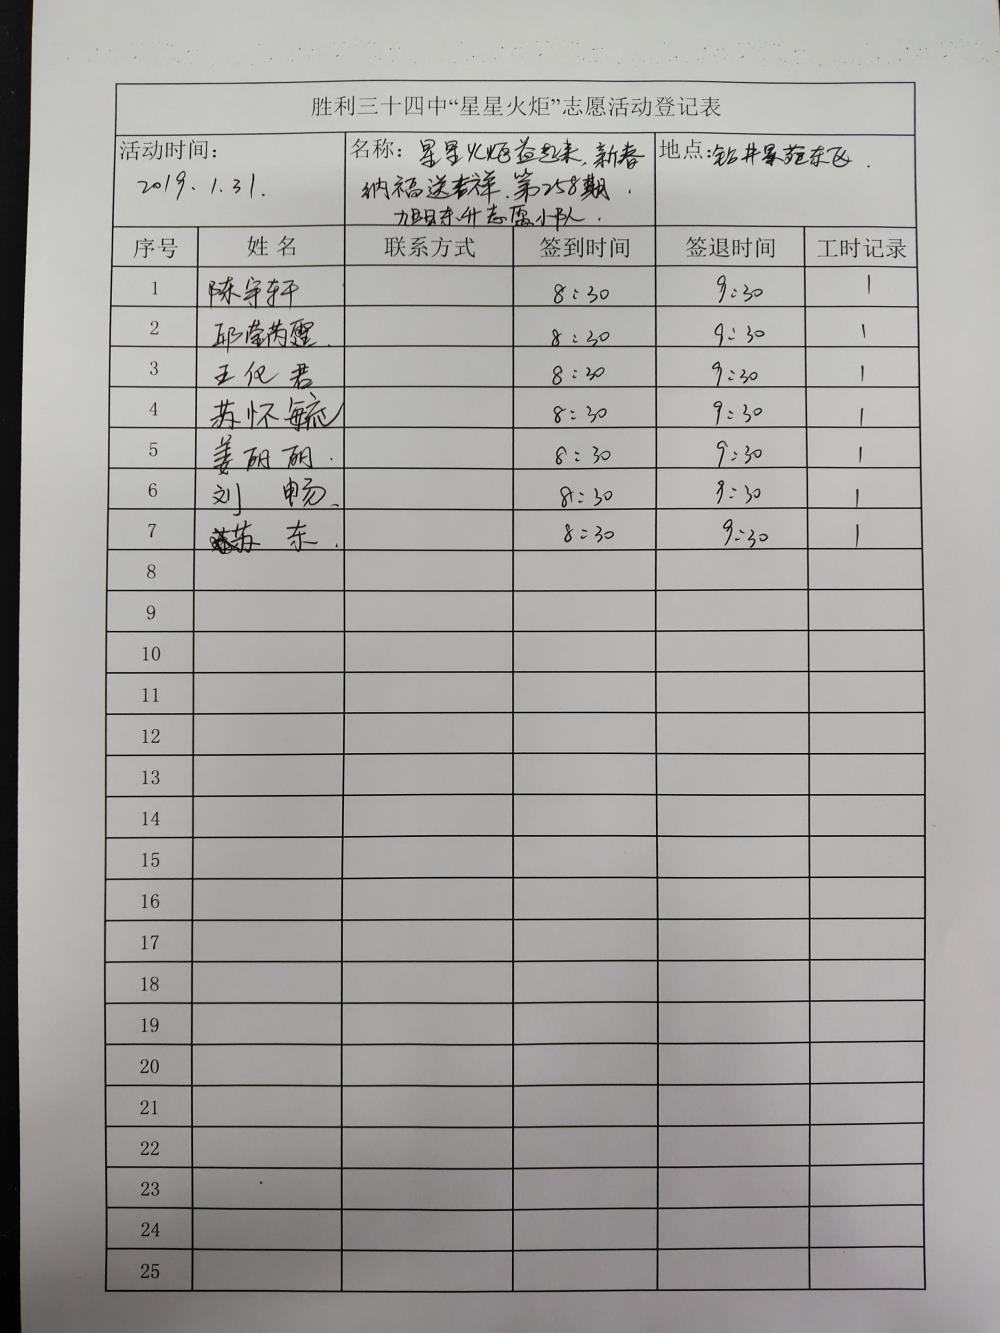 胜利三十四中“星星火炬”志愿活动登记表
活动时间： 名称：星星火炬益起来，新春 地点：钻井景苑东区.
2019.1.31. 纳福送吉祥.第258期.
旭日东升志愿小队.
序号 姓名 联系方式 签到时间 签退时间 工时记录
1 陈宇轩 8:30 9:30 1
2 邱莹芮霏. 8:30 9:30 1
3 王化君 8:30 9:30 1
4 苏怀毓 8:30 9:30 1
5 姜丽丽. 8:30 9:30 1
6 刘畅. 8:30 9:30 1
7 苏东. 8:30 9:30 1
8
9
10
11
12
13
14
15
16
17
18
19
20
21
22
23
24
25